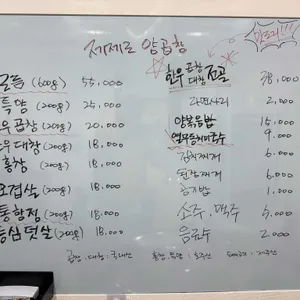 제제로 양곱창
맛도리!!!!
모듬 (600g) 55,000
특양 (200g) 25,000
한우곱창 (200g) 20,000
한우대창 (200g) 18,000
홍창 (200g) 18,000
오겹살 (200g) 18,000
통항정 (200g) 18,000
등심덧살 (200g) 18,000
한우 곱창 대창 전골 38,000
라면사리 2,000
양볶음밥 15,000
열무동치미국수 9,000
김치찌개 6,000
된장찌개 6,000
공기밥 1,000
소주, 맥주 5,000
음료수 2,000
곱창, 대창: 국내산